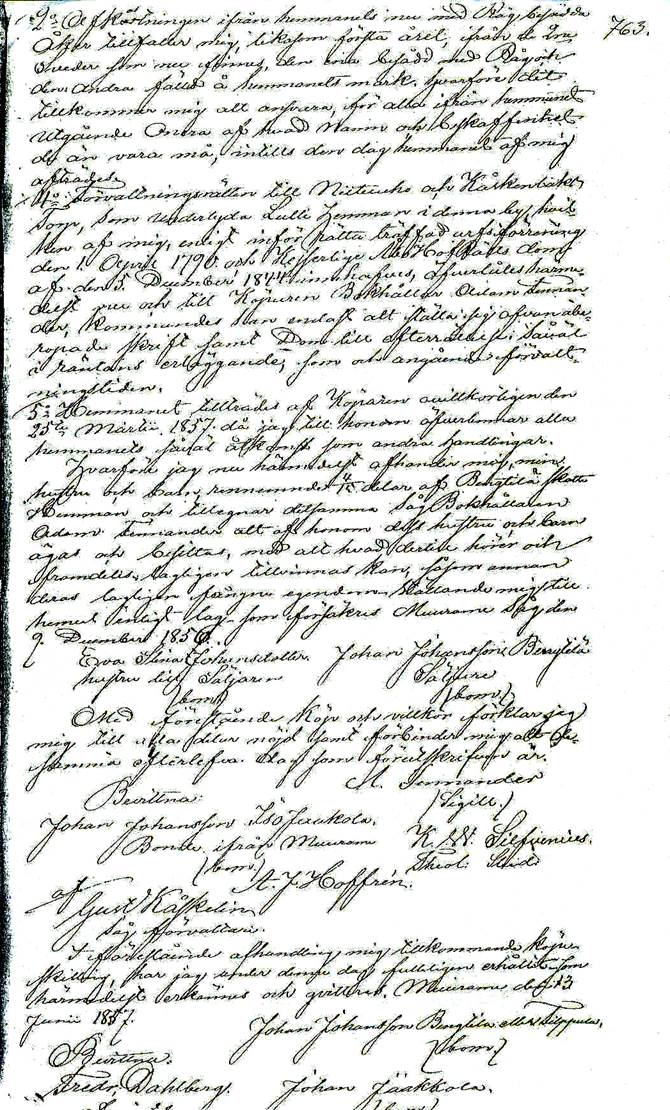 763.
Afkastningen ifrån hemmanets nu med Råg besådda
Åker tillfaller mig, liksom första året, ifrån de
Sveder som nu finnes, den ena besådd med Råg och
den andra fälld å hemmanets mark. hvarföre det
tillkommer mig att ansvara, för alla ifrån hemmanet
utgående Onera af hvad namn och beskaffenhet
de än vara må, intills den dag hemmanet af mig
afträdes.
4o Förvaltningsrätten till och
Torp, som underlyda Lulli Hemman i denna by, hvil-
ken af mig, enligt inför rätta träffad arfsförening
den 1. April 1790 och Hofrätts dom
af den 5. December 1844 innehafves, öfverlåtes härme-
delst och till Köparen Bokhållar Adam Temnan-
der, kommandes han endast att ställa sig ofvanåbe-
ropade skrift samt Dom till efterrättelse; såväl
i räntans erläggande, som och angående förvalt-
ningstiden.
5o Hemmanet tillträdes af Köparen ovillkorligen den
25te Martii 1857. då jag till honom öfverlemnar alla
hemmanets såväl åtkomst som andra handlingar.
Hvarföre jag nu härmedelst afhänder mig, min
hustru och barn, delar af Bengtilä Skatte
Hemman och tillegnar detsamma Bokhållaren
Adam Temnander att af honom dess hustru och barn
ägas och besittas, med allt hvad dertill hörer och
framdeles lagligen tillvinnas kan, såsom annan
deras lagligen fångna egendom, hållande mig till
hemul enligt lag, som försäkras Muurame Såg den
9. December 1856.
Eva Stina Johansdotter. Johan Johansson Bengtilä
hustru till Säljaren Säljare
(bom.) (bom.)
Med föregående Köp och villkor förklar jag
mig till alla delar nöjd samt förbinder mig att de-
samma efterlefva. dag som förut skrifven är.
A. Temnander
(Sigill.)
Bevittna:
Johan Johansson Iso Jaakola. K. W. Silfvenius.
Bonde ifrån Muurame Theol. Stud.
(bom.) A. J. Hoffrén.
af
Gust Kåskelin
Såg förvaltare.
I föreståendе afhandling mig tillkommande köpe-
skilling, har jag under denna dag fullligen erhållit som
härmedelst erkännes och qvitteras. Muurame den 13
Junii 1857.
Johan Johansson Bengtilä eller Filppula,
(bom.)
Bevittna.
Fredr. Dahlberg. Johan Jaakkola.